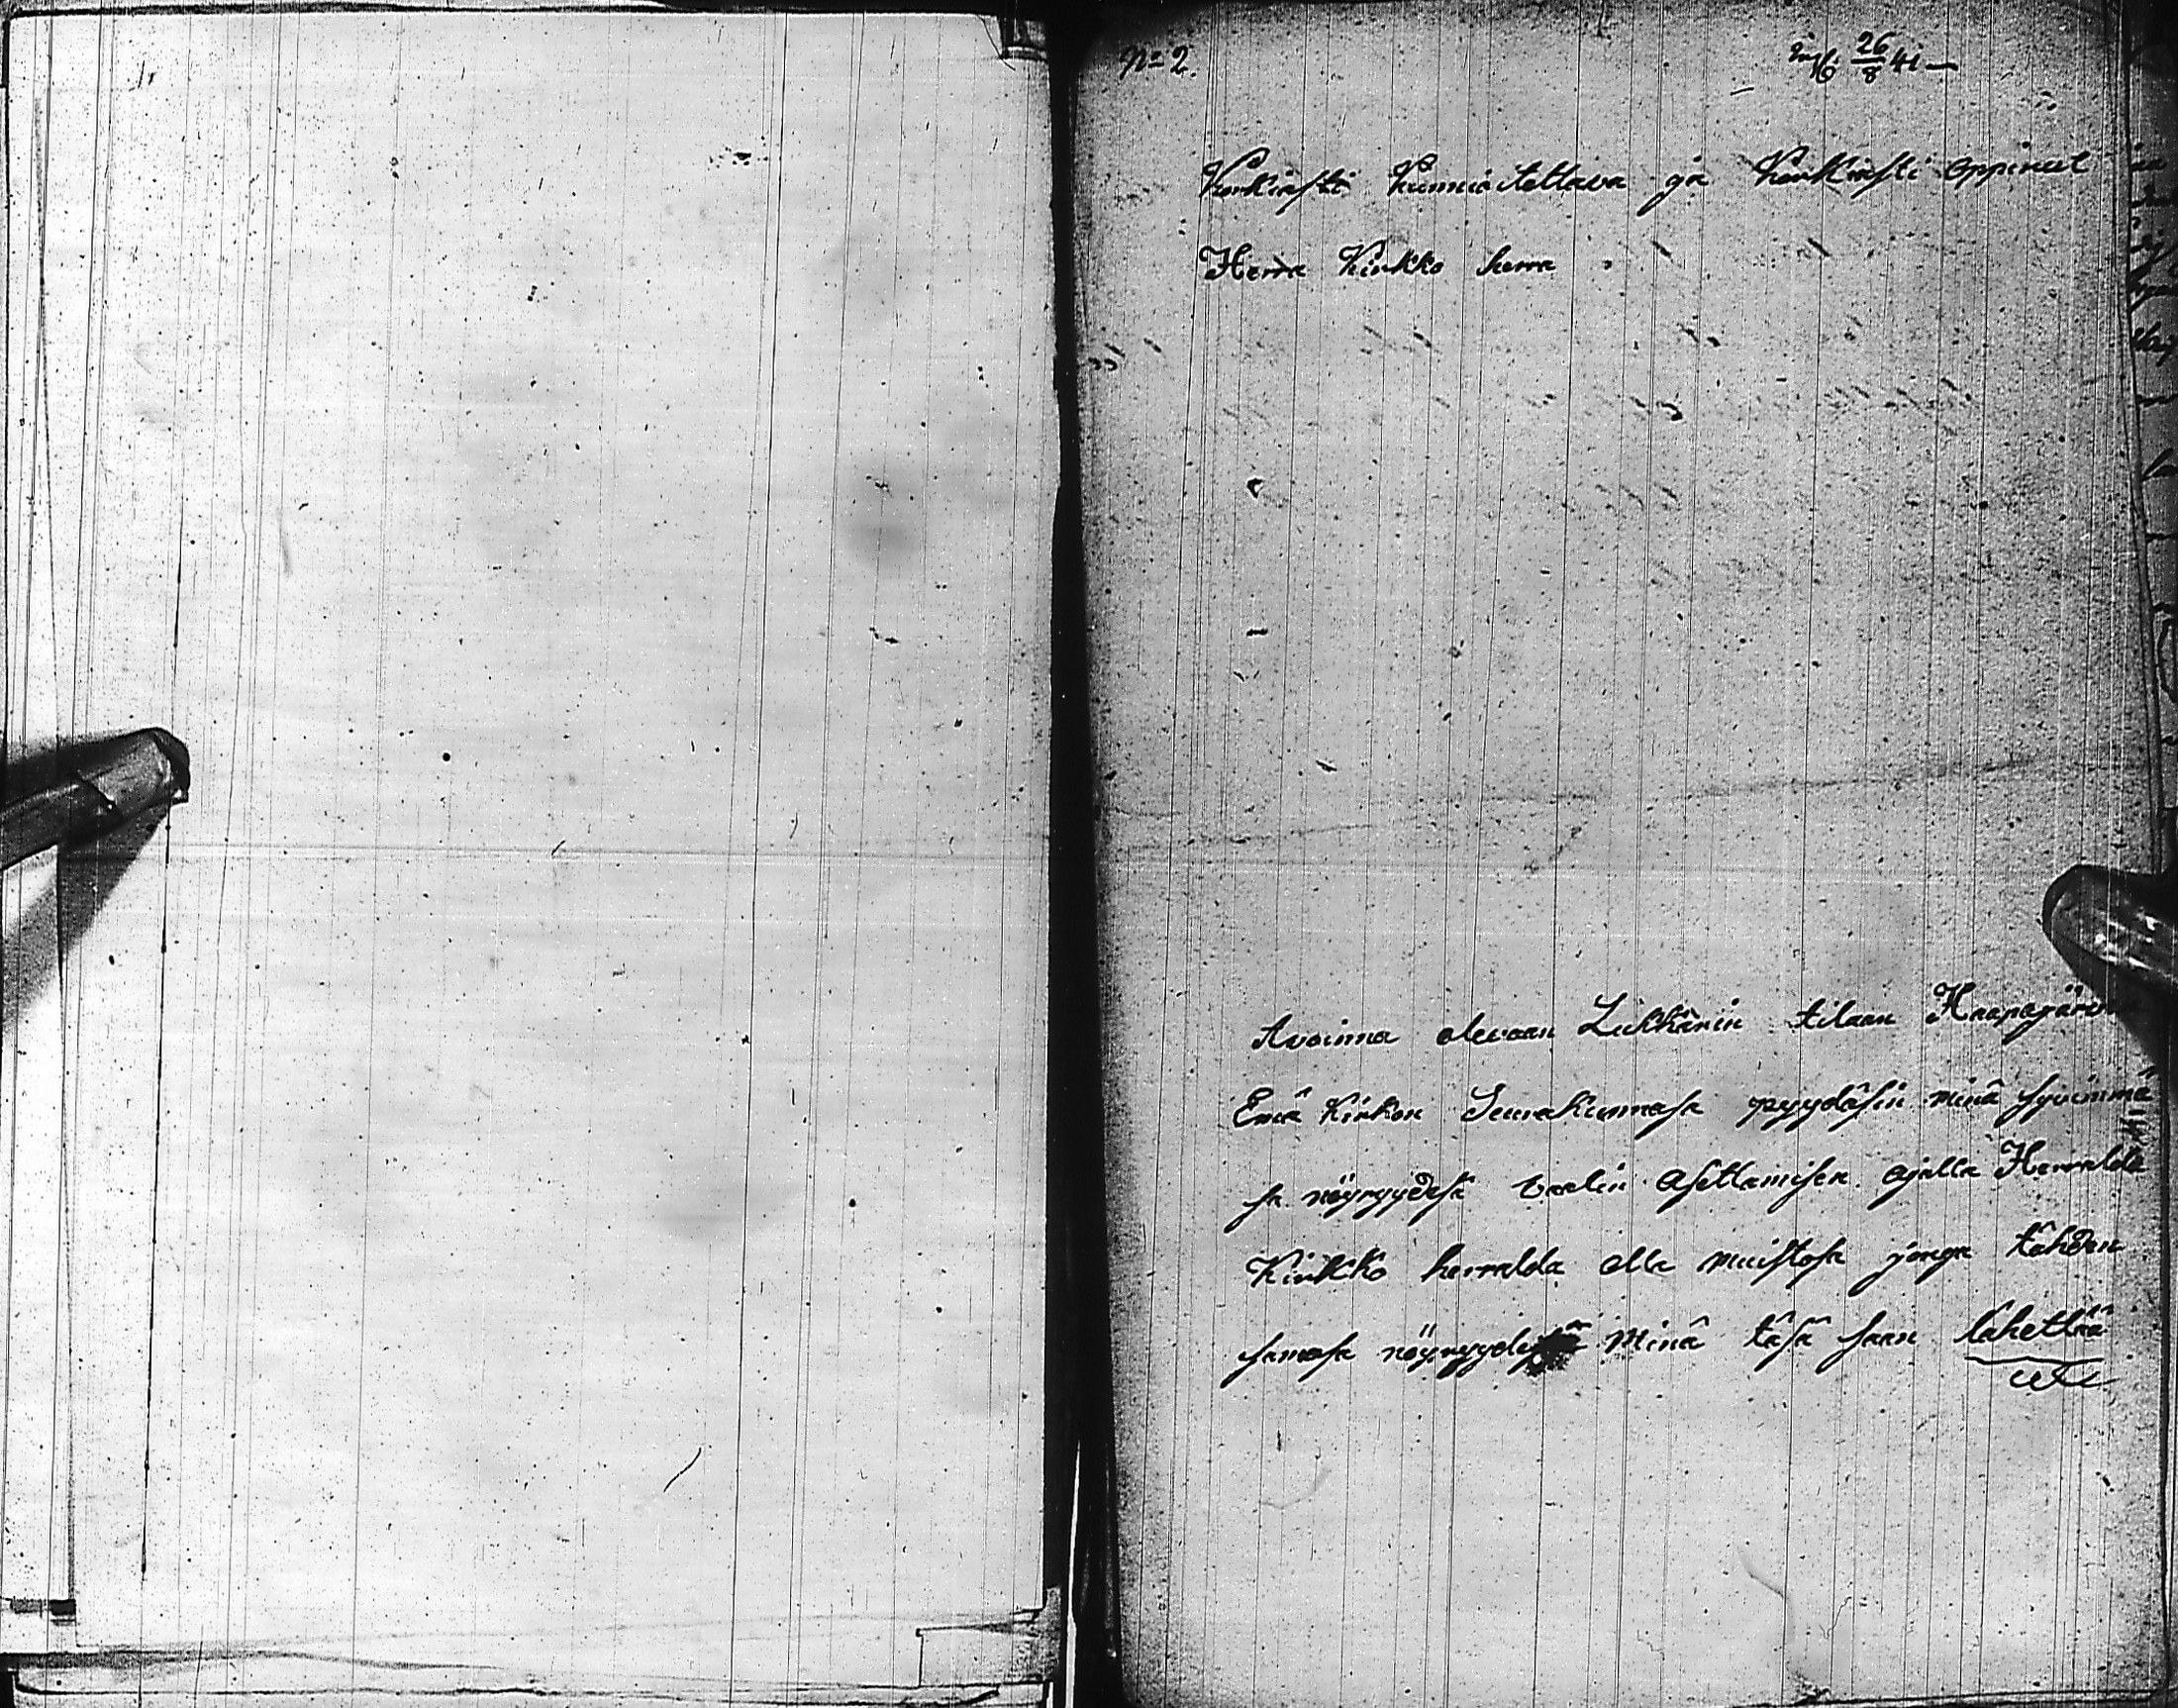 No 2.
26/8 41
Korkiasti Kunnioitettava ja Korkiasti Oppinut
Herra Kirkko herra
Avoinna olevaan Lukkärin tilaan Haapajärven
Emä Kirkon Seurakunnasa pyydäsin minä syvimmä
sä nöyryydesä vaalin asettamisen ajalla Herralda
Kirkko herralda olla muistosa jonga tähden
samasa nöyryydesä Minä täsä saan lähettää